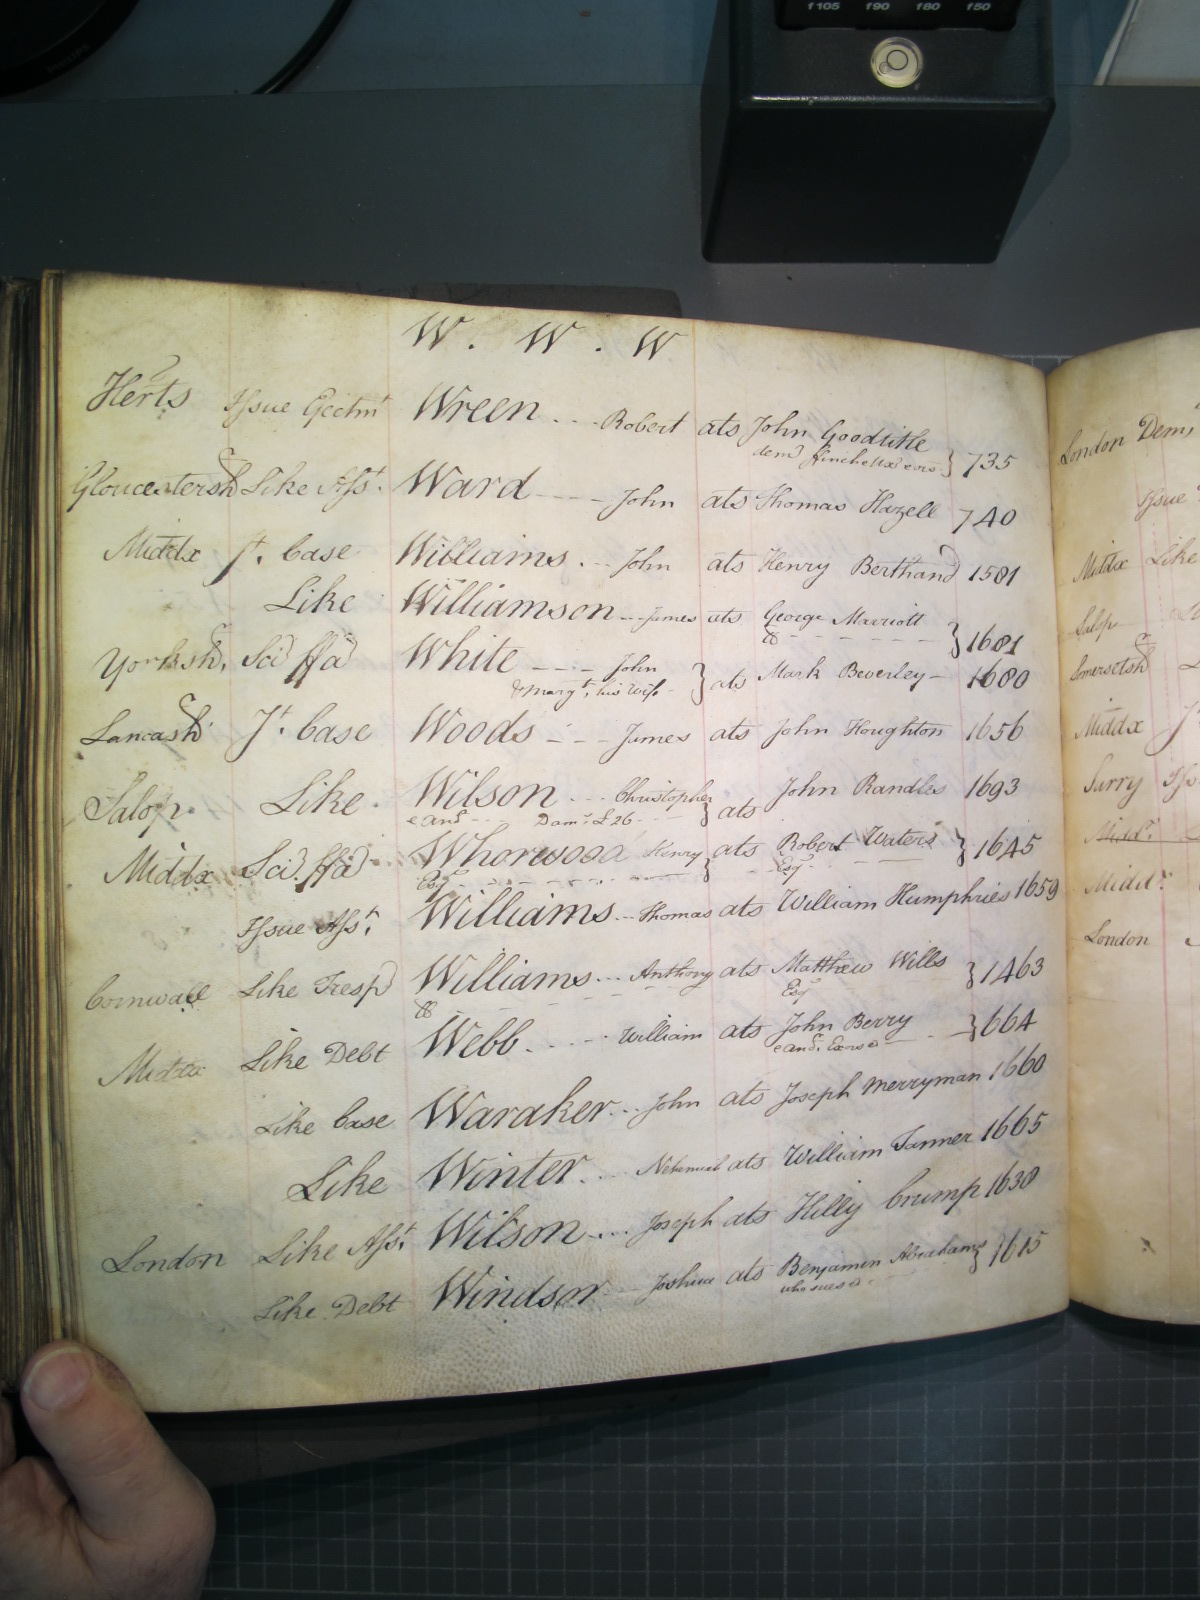 f105 f90 f80 f50
W. W. W
Herts Issue Eectmt Wreen Robert ats John Goodtitle
dem 735
Gloucestersh Like Asst. Ward John ats Thomas Hazell 740
Middx Jt. Case Williams John ats Henry Berthand 1581
Like Williamson James ats George Marriott
& 1681
Yorksh. Sci ffa White John
& Margt. his Wife ats Mark Beverley 1680
Lancash Jt. Case Woods James ats John Houghton 1656
Salop. Like Wilson Christopher
and Dams. £26 ats John Randles 1693
Middx Sci. ffa Whorwood Henry
Esqr ats Robert Waters
Esqr 1645
Issue Asst. Williams Thomas ats William Humphries 1659
Cornwall Like Tresp Williams Anthony
& ats Matthew Wills
Esqr 1463
Middx Like Debt Webb William ats John Berry
and Exors 664
Like Case Waraker John ats Joseph Merryman 1660
Like Winter Nehemiah ats William Tanner 1665
London Like Asst. Wilson Joseph ats Hilly Crump 1638
Like Debt Windsor Joshua ats Benjamin Abrahams
who sues 1615
London Dem.
Issue
Middx Like
Salop
Somersetsh
Middx J
Surry Iss
Middx
Middx
London